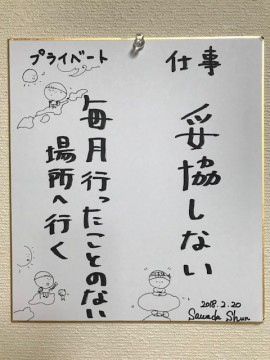 仕事
妥協しない
プライベート
毎月行ったことのない
場所へ行く
2018.2.20
Sawada Shun